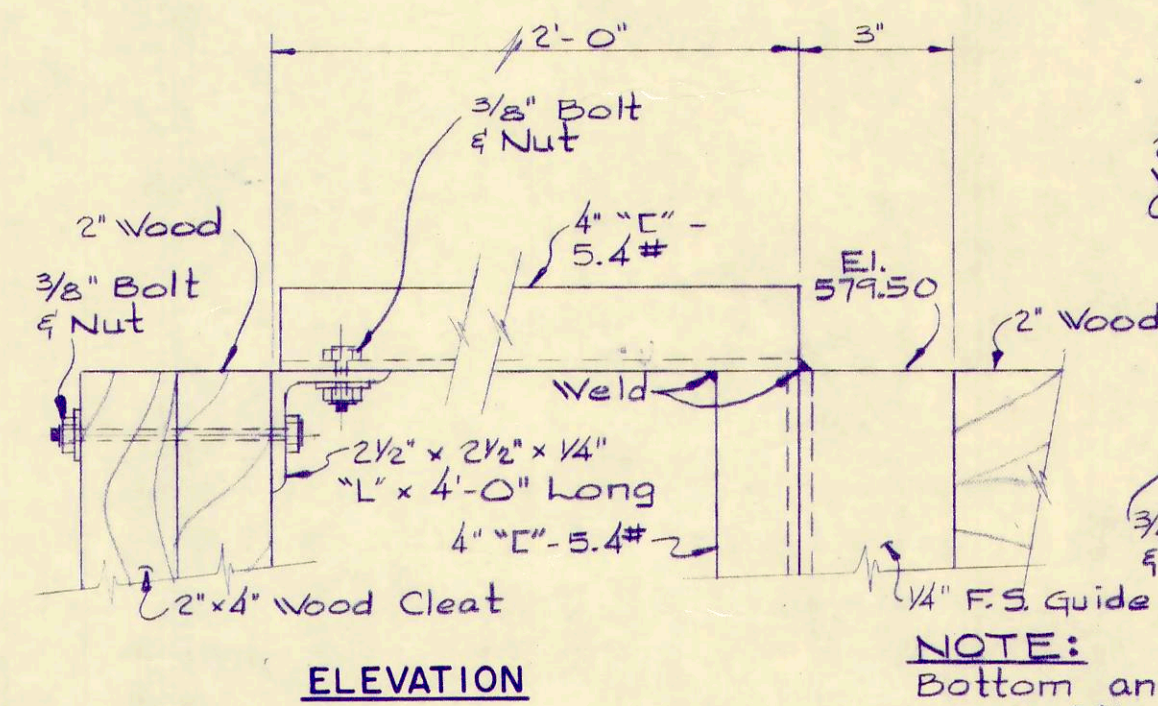 2'-0"
3"
3/8" Bolt
& Nut
2" Wood
4" "[" -
5.4#
3/8" Bolt
& Nut
El.
579.50
2" Wood
Weld
2 1/2" x 2 1/2" x 1/4"
"L" x 4'-0" Long
4" "["- 5.4#
2" x 4" Wood Cleat
1/4" F.S. Guide
ELEVATION
NOTE:
Bottom an